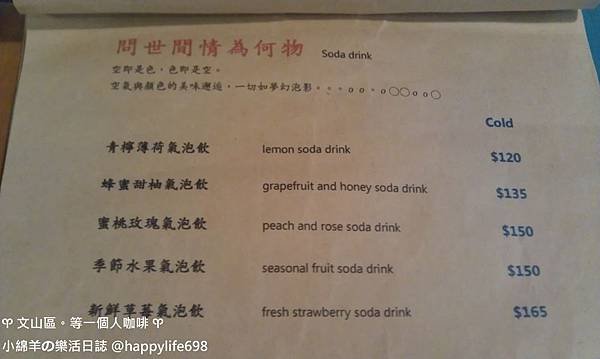 問世間情為何物 Soda drink
空即是色，色即是空。
空氣與顏色的美味邂逅，一切如夢幻泡影。。。o o 。o〇〇o o〇
Cold
青檸薄荷氣泡飲 lemon soda drink $120
蜂蜜甜柚氣泡飲 grapefruit and honey soda drink $135
蜜桃玫瑰氣泡飲 peach and rose soda drink $150
季節水果氣泡飲 seasonal fruit soda drink $150
新鮮草莓氣泡飲 fresh strawberry soda drink $165
♈ 文山區。等一個人咖啡 ♈
小綿羊の樂活日誌 @happylife698